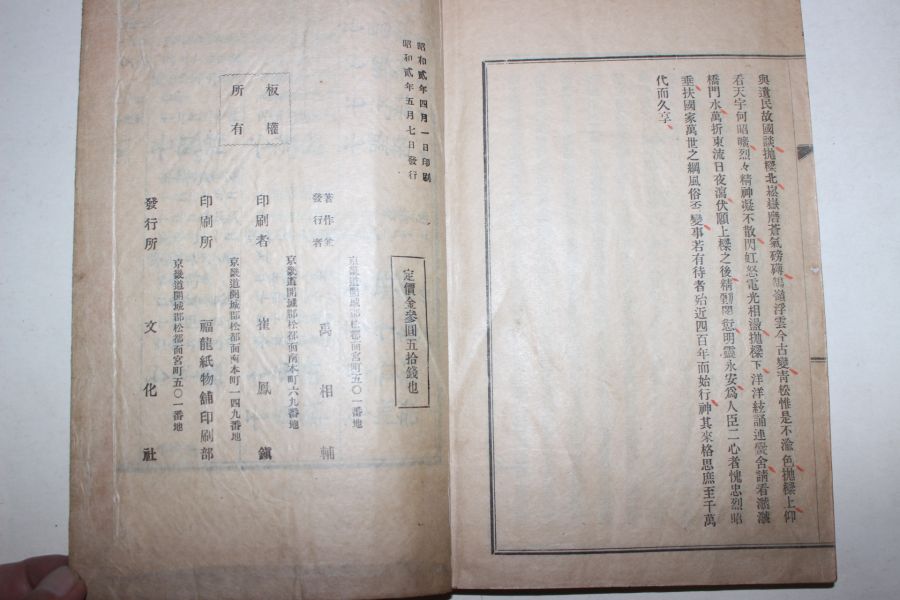 與遺民故國談拋樑北崧嶽磨蒼氣磅礴鵠嶺浮雲今古變靑松惟是不渝色拋樑上仰
看天宇何昭曠烈々精神凝不散閃虹怒電光相盪拋樑下洋洋絃誦連黌舍請看瀰瀰
橋門水萬折東流日夜瀉伏願上樑之後精朝悶愆明靈永安爲人臣二心者愧忠烈昭
垂扶國家萬世之綱風俗丕變事若有待者殆近四百年而始行神其來格思庶至千萬
代而久享
昭和貳年四月一日印刷
昭和貳年五月七日發行
板權
所有
定價金參圓五拾錢也
京畿道開城郡松都面宮町五〇一番地
著作兼
發行者
禹相輔
京畿道開城郡松都面南本町六九番地
印刷者 崔鳳鎭
京畿道開城郡松都面南本町一四九番地
印刷所 福龍紙物舖印刷部
京畿道開城郡松都面宮町五〇一番地
發行所 文化社